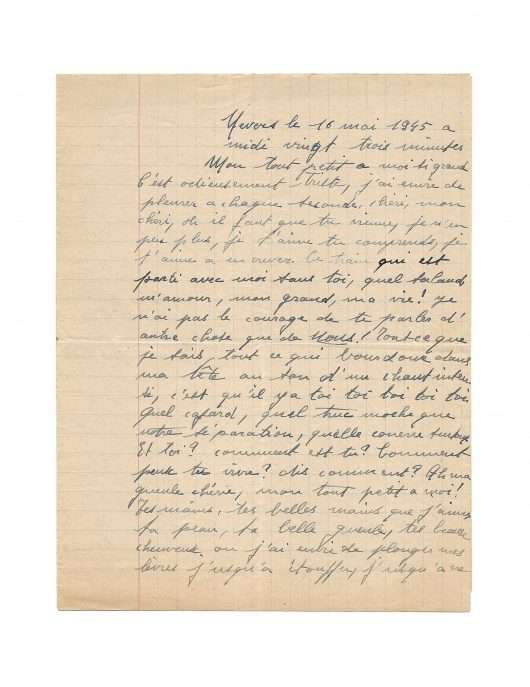 Nevers le 16 mai 1945 a
midi vingt trois minutes
Mon tout petit a moi si grand
C'est odieusement triste, j'ai envie de
pleurer a chaque seconde, chéri, mon
chéri, oh il faut que tu viennes, je n'en
peux plus, je t'aime tu comprends, je
t'aime a en crever le train qui est
parti avec moi sans toi, quel salaud
m'amour, mon grand, ma vie! je
n'ai pas le courage de te parler d'
autre chose que de Nous! Tout ce que
je sais, tout ce qui bourdonne dans
ma tête au son d'un chant inten
si, c'est qu'il y a toi toi toi toi toi
Quel cafard, quel truc moche que
notre séparation, quelle connerie
Et toi? comment est tu? Comment
peux tu vivre? dis comment? Oh ma
gueule chérie, mon tout petit a moi!
Tes mains, tes belles mains que j'aime
ta peau, ta belle gueule, tes beaux
cheveux ou j'ai envie de plonger mes
lèvres j'usqu'a étouffer, j'usqu'a ne